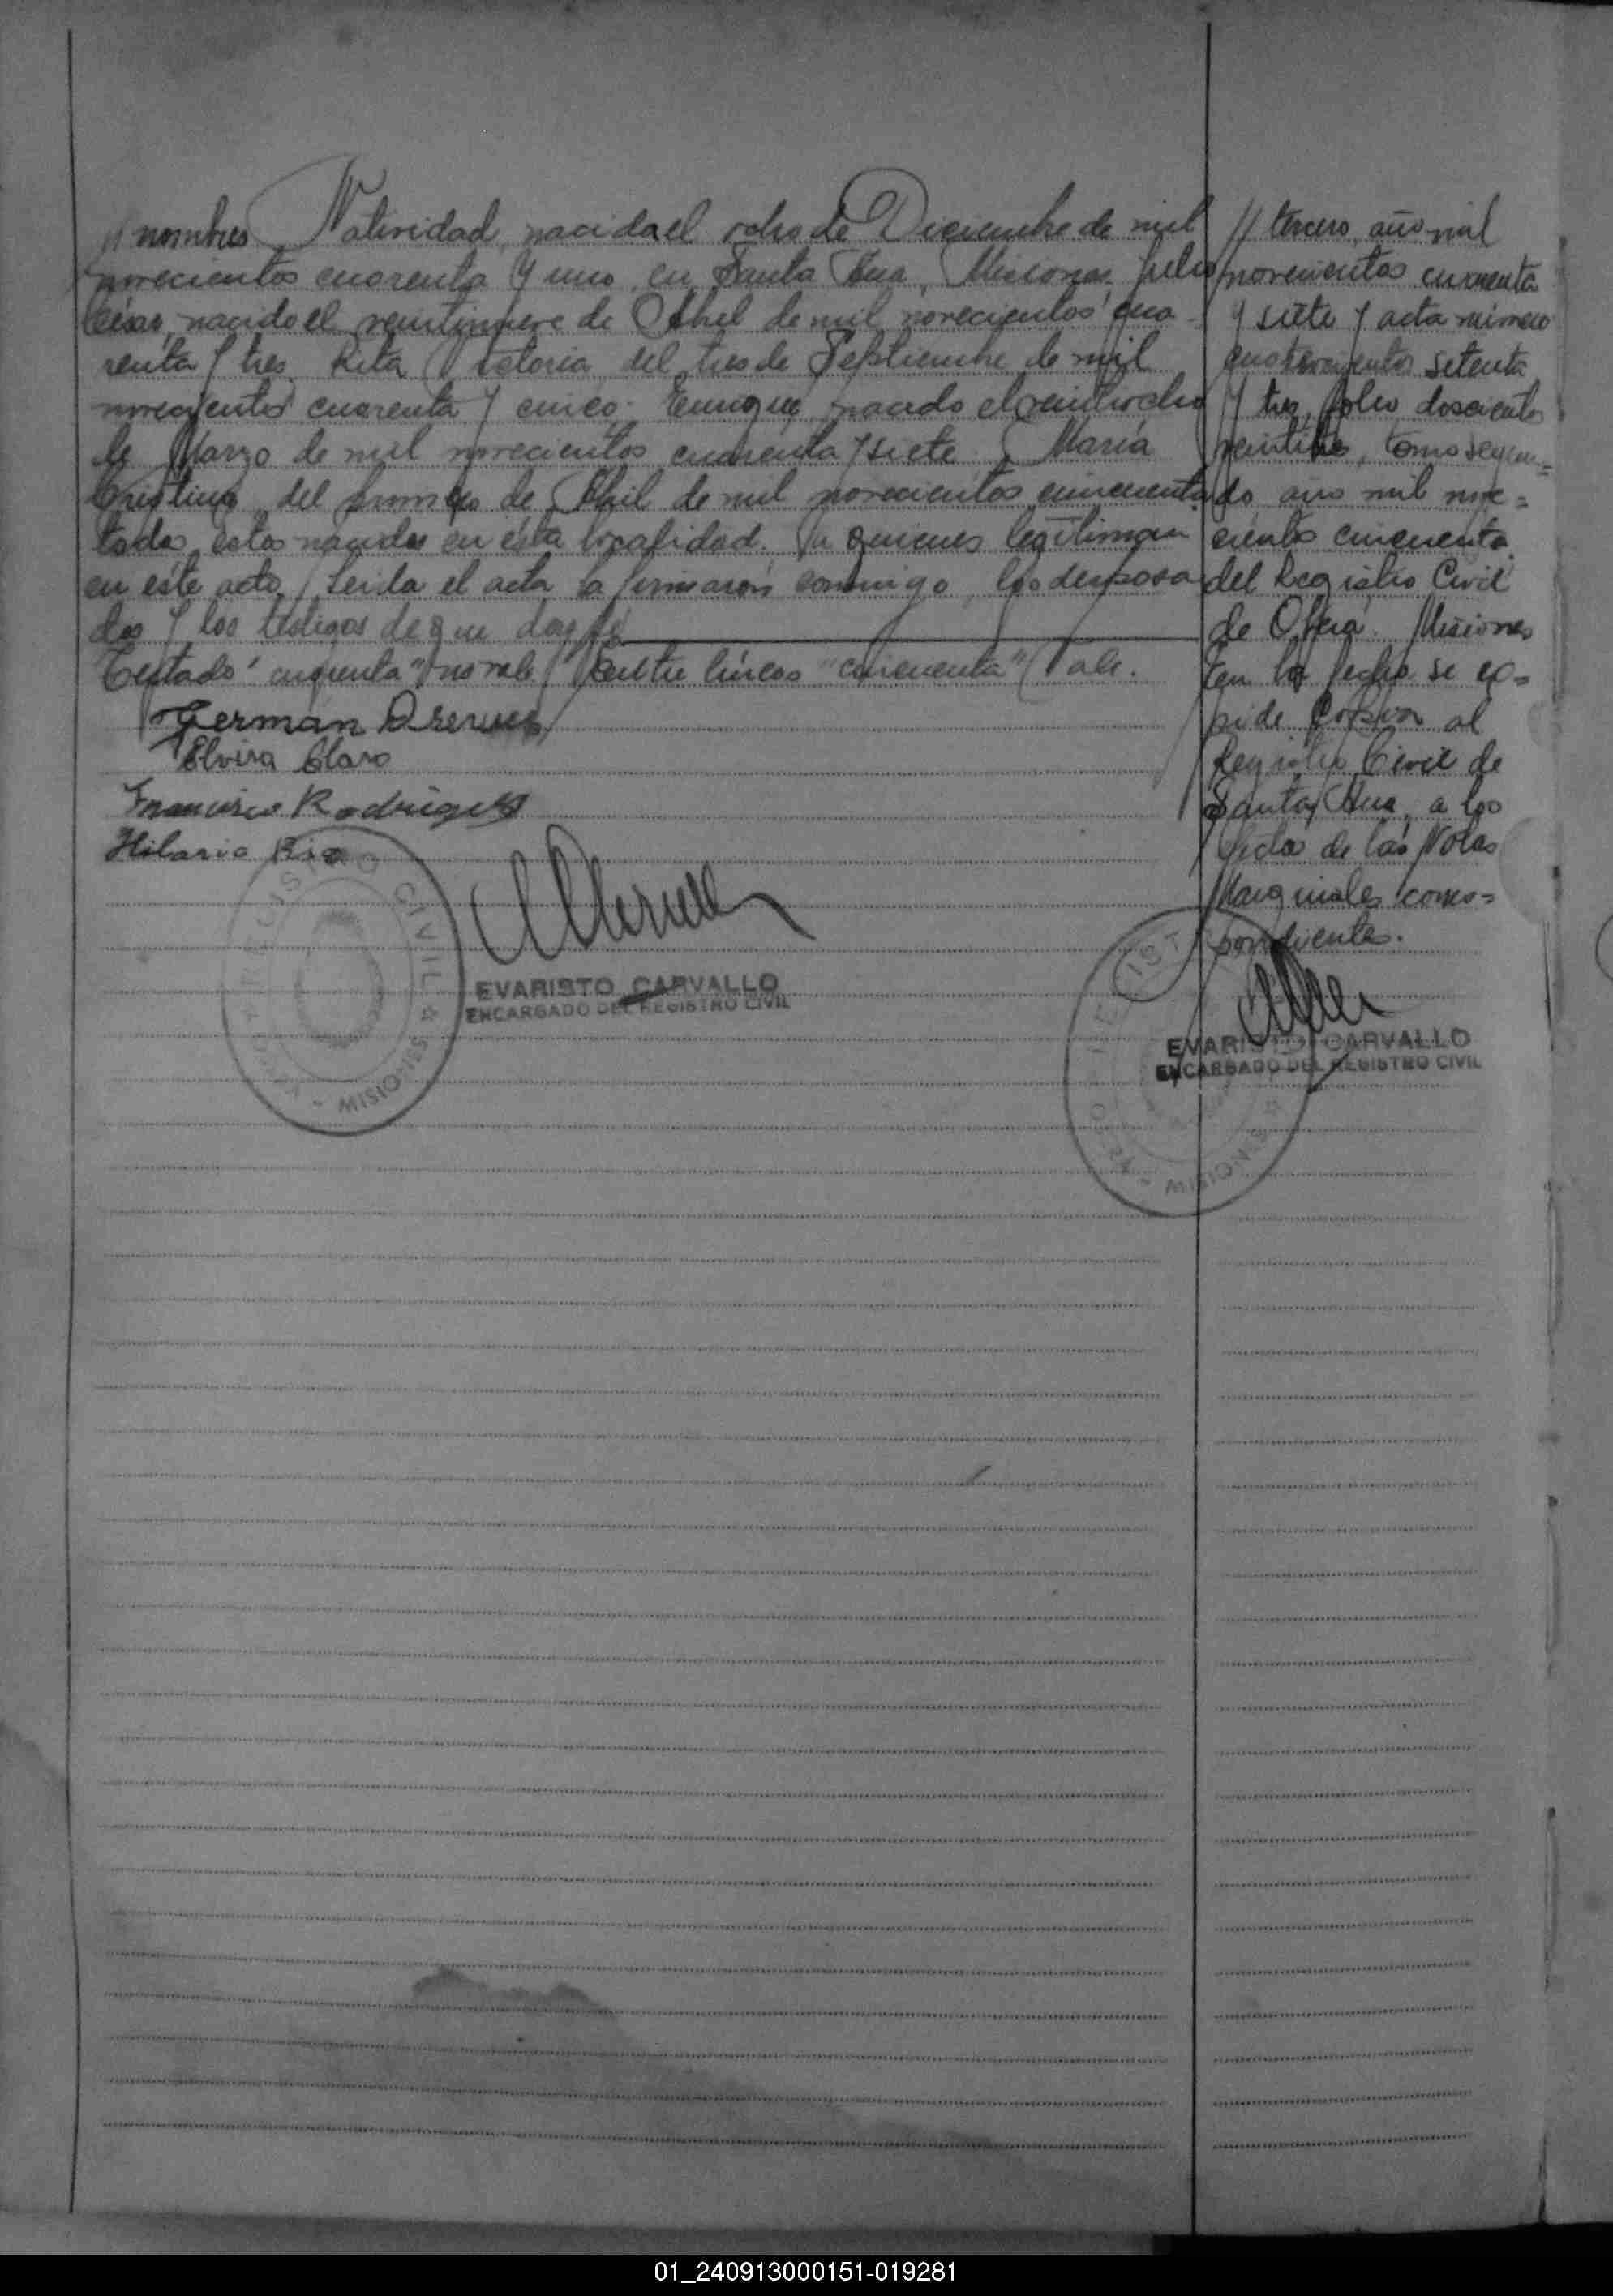 // nombres Natividad, nacida el ocho de Diciembre de mil
novecientos cuarenta y uno, en Santa Ana, Misiones. Julio
César, nacido el veintinueve de Abril de mil novecientos cua-
renta y tres. Rita Victoria, del tres de Septiembre de mil
novecientos cuarenta y cinco. Enrique, nacido el veintiocho
de Marzo de mil novecientos cuarenta y siete. María
Cristina, del primero de Abril de mil novecientos cincuenta
todos estos nacidos en ésta localidad. A quienes legitiman
en éste acto. Leida el acta la firmaron conmigo, los desposa
dos y los testigos de que doy fe
Testado "cuarenta" no vale. Entre líneas "cincuenta" Vale.
Germán
Elvira Claro
Francisco Rodriguez
Hilario Rio
REGISTRO CIVIL
MISIONES
EVARISTO CARVALLO
ENCARGADO DEL REGISTRO CIVIL
// tercero, año mil
novecientos cuarenta
y siete y acta número
cuatrocientos setenta
y tres, folio doscientos
tomo segun=
do año mil nove=
cientos cincuenta
del Registro Civil
de Oberá. Misiones
En la fecha se ex=
pide copia al
Registro Civil de
Santa Ana, a los
fectos de las Notas
Marginales corres=
pondientes.
EVARISTO CARVALLO
ENCARGADO DEL REGISTRO CIVIL
01_240913000151-019281